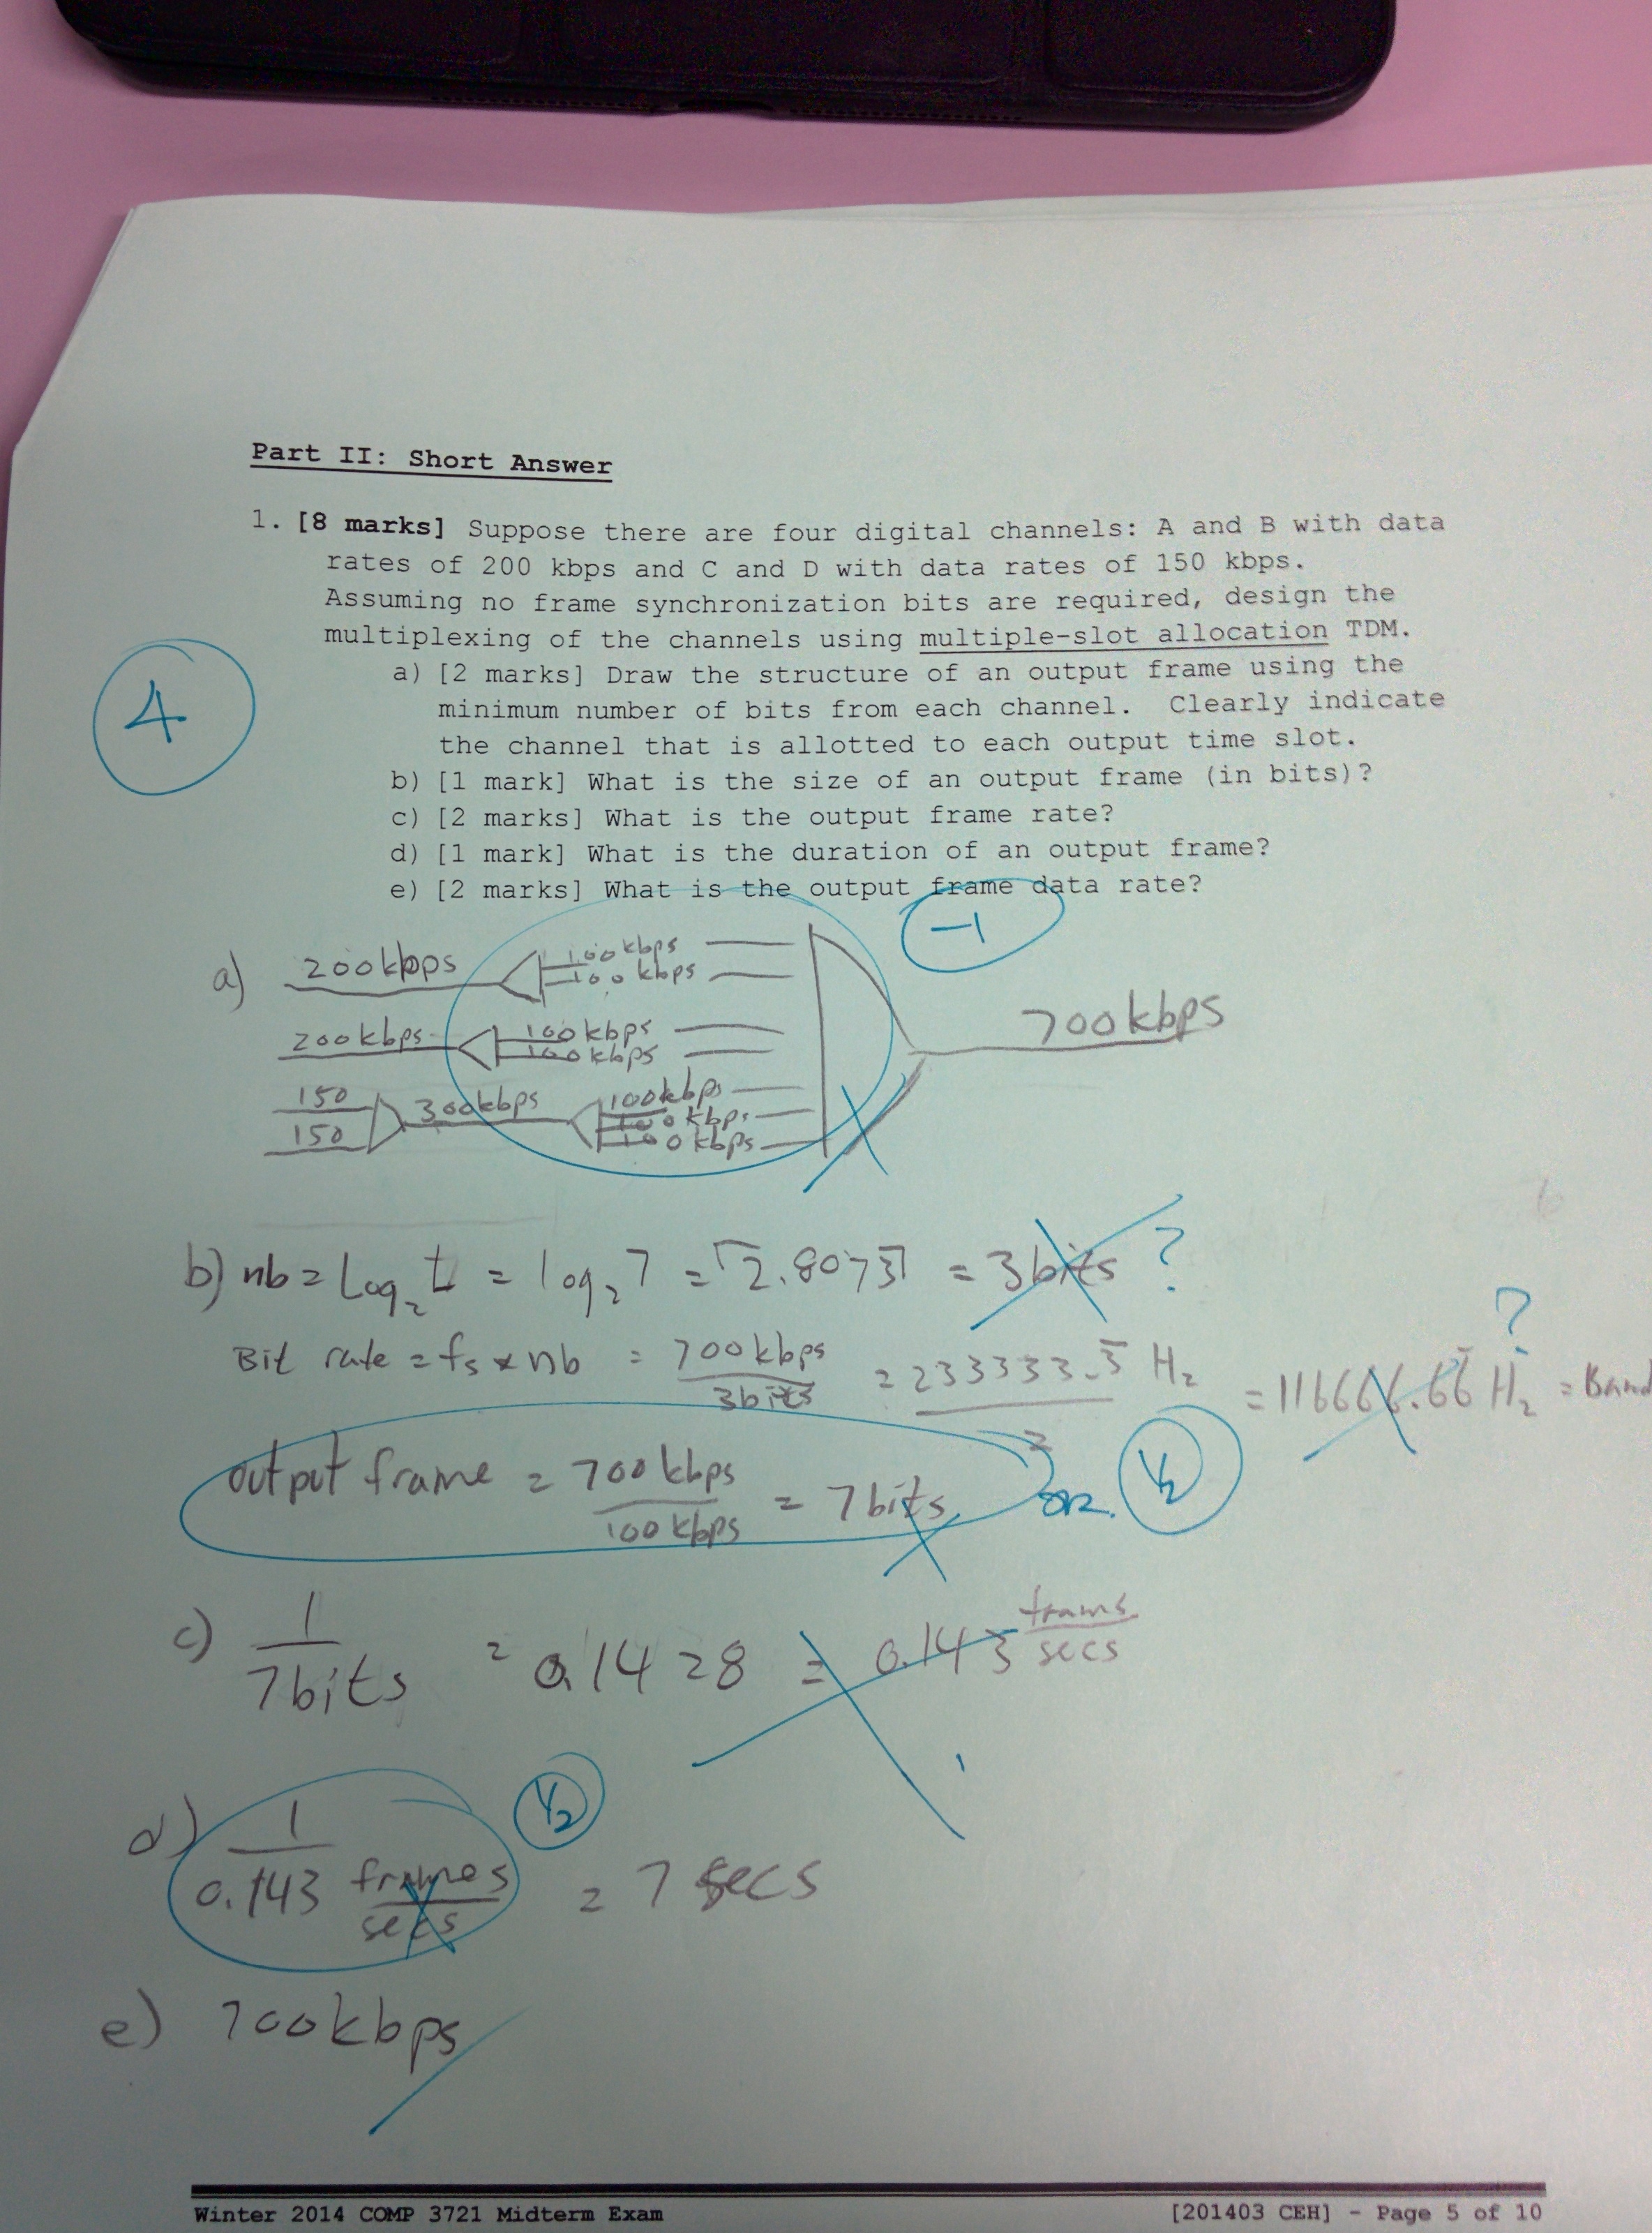 Part II: Short Answer
1. [8 marks] Suppose there are four digital channels: A and B with data
rates of 200 kbps and C and D with data rates of 150 kbps.
Assuming no frame synchronization bits are required, design the
multiplexing of the channels using multiple-slot allocation TDM.
4
a) [2 marks] Draw the structure of an output frame using the
minimum number of bits from each channel. Clearly indicate
the channel that is allotted to each output time slot.
b) [1 mark] What is the size of an output frame (in bits)?
c) [2 marks] What is the output frame rate?
d) [1 mark] What is the duration of an output frame?
e) [2 marks] What is the output frame data rate?
-1
a) 200kbps
100kbps
100 kbps
200kbps
100kbps
100kbps
700kbps
150
150
300kbps
100kbps
100kbps
100kbps
b) nb = Log₂ L = log₂ 7 = ⌈2.8073⌉ = 3bits ?
Bit rate = fs * nb = 700kbps
3bits
= 233333.3 Hz
2
= 116666.66 Hz = Band
?
output frame = 700kbps
100kbps
= 7bits
OR
1/2
c) 1
7bits
= 0.1428 = 0.143 frams
secs
d) 1
0.143 frames
secs
1/2
= 7 secs
e) 700kbps
Winter 2014 COMP 3721 Midterm Exam
[201403 CEH] - Page 5 of 10